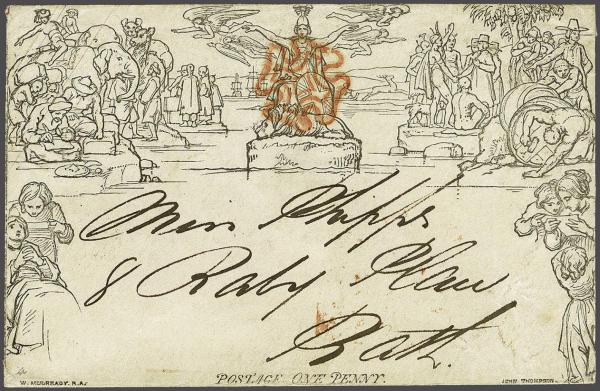 Miss Phipps
8 Raby Place
Bath.
POSTAGE ONE PENNY.
W. MULREADY. R.A.
JOHN THOMPSON.